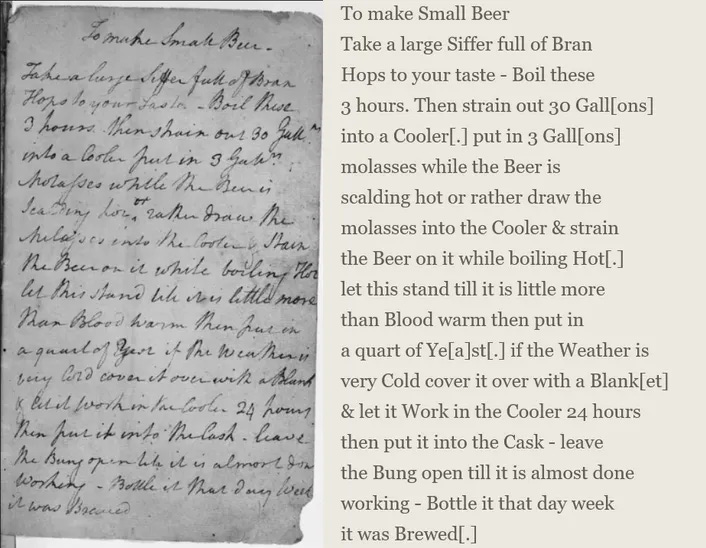 To make Small Beer -
Take a large Siffer full of Bran
Hops to your Taste - Boil these
3 hours. then strain out 30 Gall.ns
into a Cooler put in 3 Gall.ns
Molasses while the Beer is
Scalding hot or rather draw the
Melasses into the Cooler & Stain
the Beer on it while boiling Hot
let this stand till it is little more
than Blood warm then put in
a quart of Yest if the Weather is
very Cold cover it over with a Blank
& let it work in the Cooler 24 hours
then put it into the Cask - leave
the Bung open till it is almost don
Working - Bottle it that day Week
it was Brewed
To make Small Beer
Take a large Siffer full of Bran
Hops to your taste - Boil these
3 hours. Then strain out 30 Gall[ons]
into a Cooler[.] put in 3 Gall[ons]
molasses while the Beer is
scalding hot or rather draw the
molasses into the Cooler & strain
the Beer on it while boiling Hot[.]
let this stand till it is little more
than Blood warm then put in
a quart of Ye[a]st[.] if the Weather is
very Cold cover it over with a Blank[et]
& let it Work in the Cooler 24 hours
then put it into the Cask - leave
the Bung open till it is almost done
working - Bottle it that day week
it was Brewed[.]